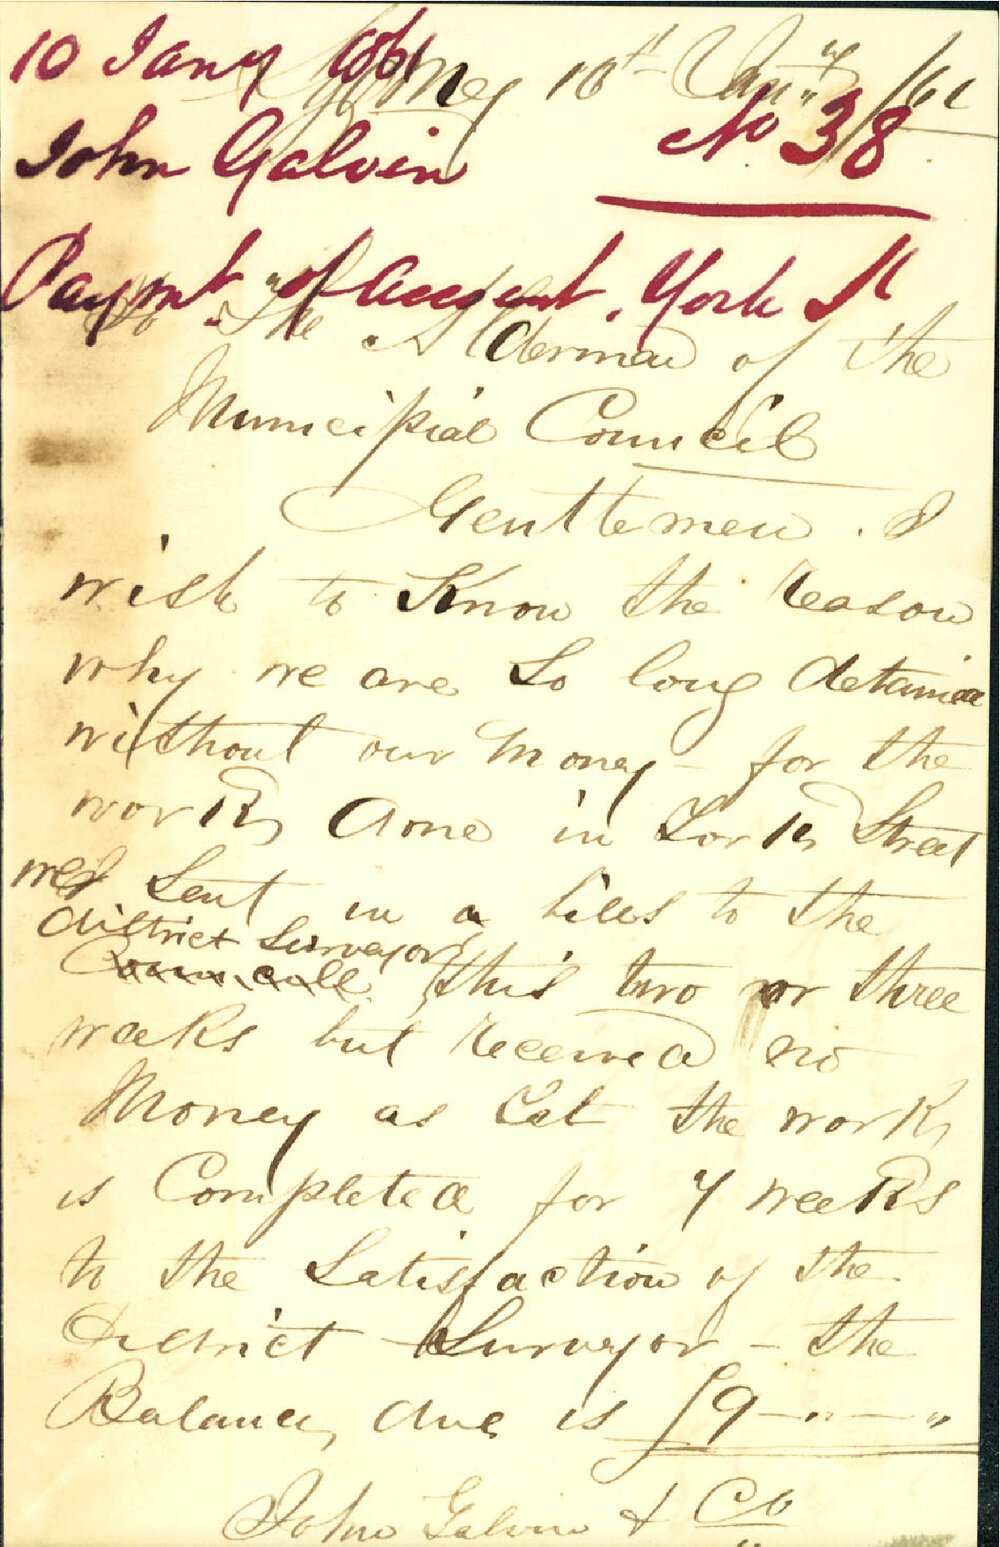 10 Jany 1861
Sydney 10th Jany /61
John Galvin
No 38
Paymt. of Account. York St
To The Aldermen of the
Municipial Council
Gentlemen. I
wish to Know the reason
why we are So long detained
without our money - for the
work done in York Street
we Sent in a bills to the
district Surveyor
this two or three
weeks but received no
Money as Yet the work
is Completed for 7 weeks
to the Satisfaction of the
District Surveyor - the
Balance due is £9 - " - "
John Galvin & Co